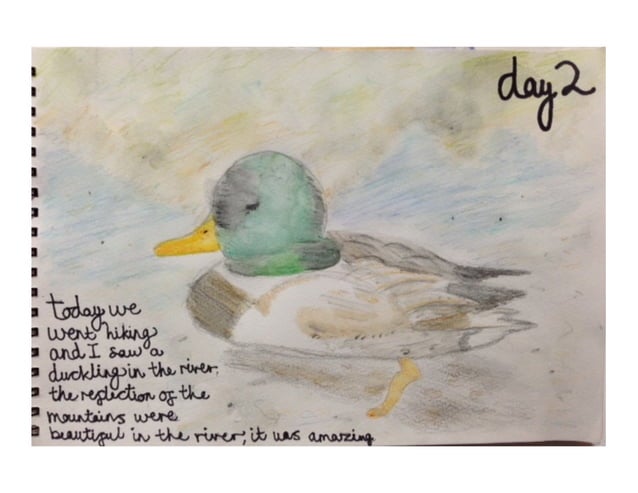 day 2
today we
went hiking
and I saw a
duckling in the river,
the reflection of the
mountains were
beautiful in the river, it was amazing